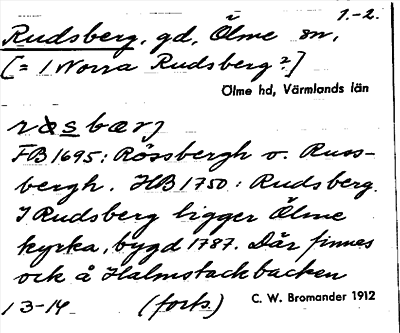 1.-2.
Rudsberg, gd, Ölme sn,
[= 1 Norra Rudsberg?]
Ölme hd, Värmlands län
FB 1695: Rössbergh o. Russ-
bergh. HB 1750: Rudsberg.
I Rudsberg ligger Ölme
kyrka, bygd 1787. Där finnes
ock å Halmstackbacken
13-14 (forts.) C. W. Bromander 1912